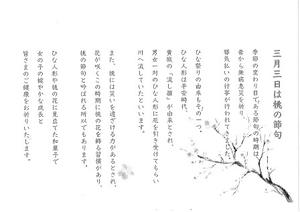 三月三日は桃の節句
季節の変わり目である節句の時期は、
昔から無病息災を祈り
邪気払いの行事が行われてきました。
ひな祭りの由来もその一つ。
ひな人形は平安時代、
貴族の「流し雛」が由来とされ、
男女一対のひな人形に厄を引き受けてもらい
川へ流していたといいます。
また、桃には災いを遠ざける力があるとされ、
花が咲くこの時期に桃の花を飾る習慣があり、
桃の節句と呼ばれる所以でもあります。
ひな人形や桃の花に見立てた和菓子で
女の子の健やかな成長と
皆さまのご健康をお祈りいたします。